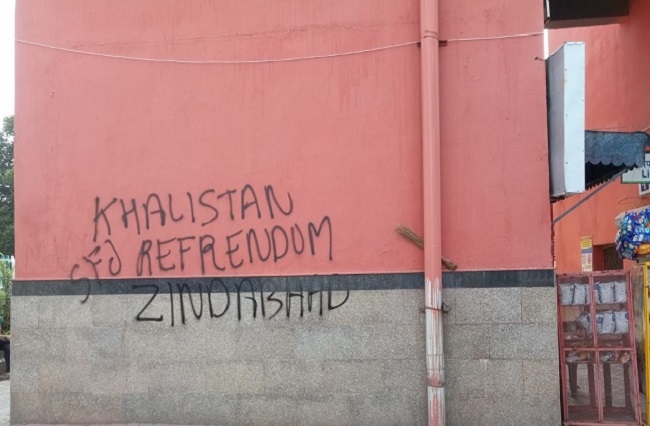 KHALISTAN
SFJ REFRENDUM
ZINDABAAD